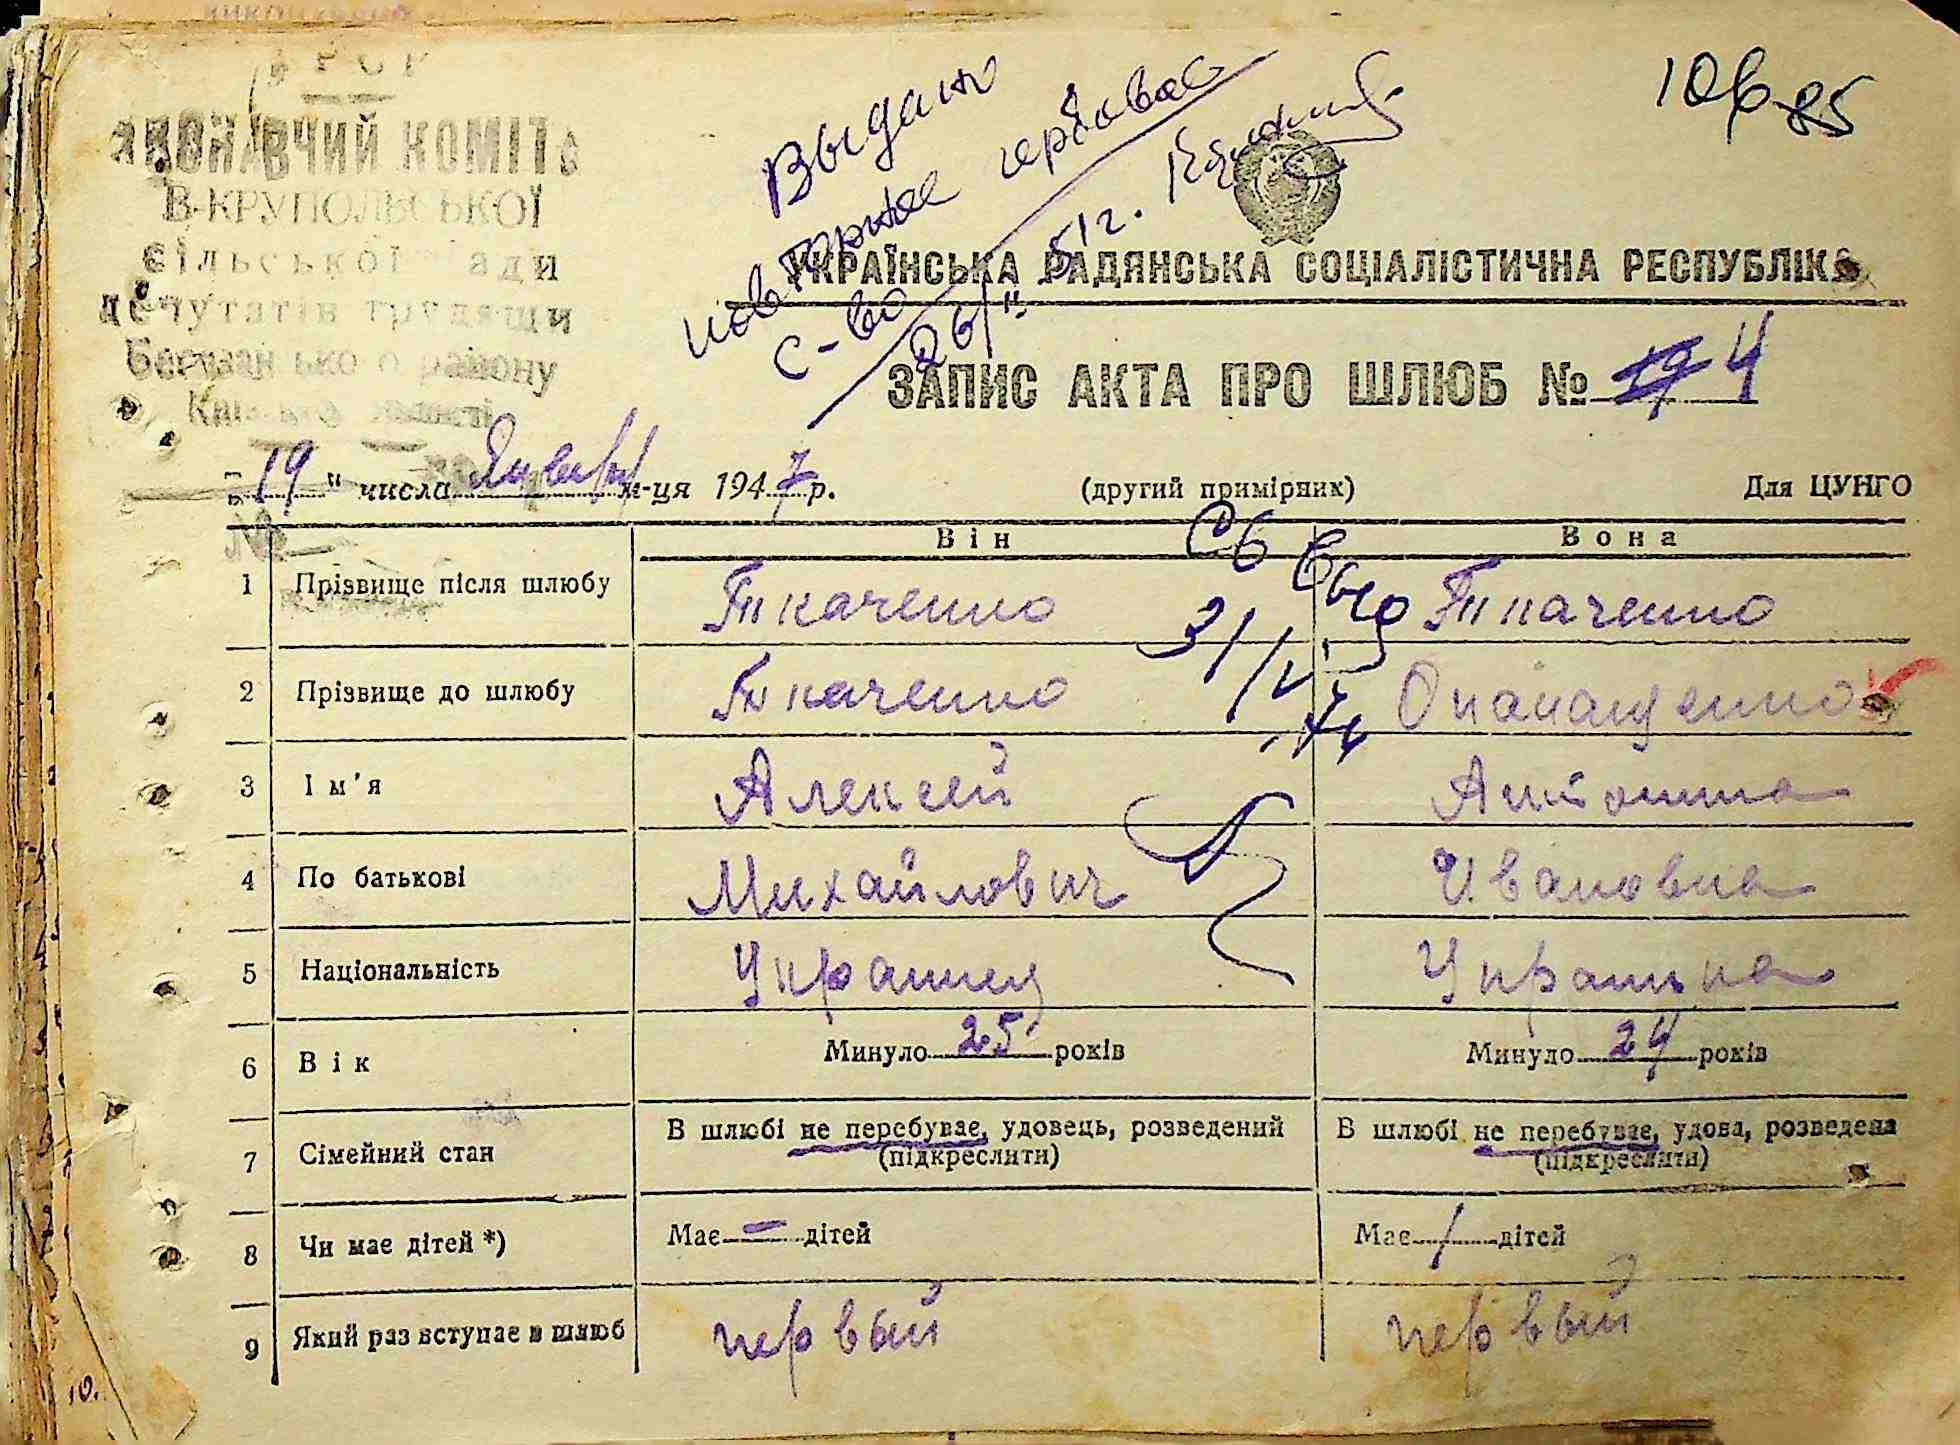 ВИКОНАВЧИЙ КОМІТЕ
В-КРУПОЛЬСЬКОЇ
сільської ради
депутатів трудящи
Березанського району
Київської області
Выдано
повторное гербовое
с-во
26/ІІ 51 г.
УКРАЇНСЬКА РАДЯНСЬКА СОЦІАЛІСТИЧНА РЕСПУБЛІКА
ЗАПИС АКТА ПРО ШЛЮБ № 4
"19" числа Января м-ця 1947 р. (другий примірник) Для ЦУНГО
Він Вона
1 Прізвище після шлюбу Ткаченко Ткаченко
2 Прізвище до шлюбу Ткаченко Опанащенко
3 Ім'я Алексей Антонина
4 По батькові Михайлович Ивановна
5 Національність Украинец Украинка
6 Вік Минуло 25 років Минуло 24 років
7 Сімейний стан В шлюбі не перебуває, удовець, розведений (підкреслити) В шлюбі не перебуває, удова, розведена (підкреслити)
8 Чи має дітей *) Має — дітей Має / дітей
9 Який раз вступає в шлюб первый первый
Св выд
10.